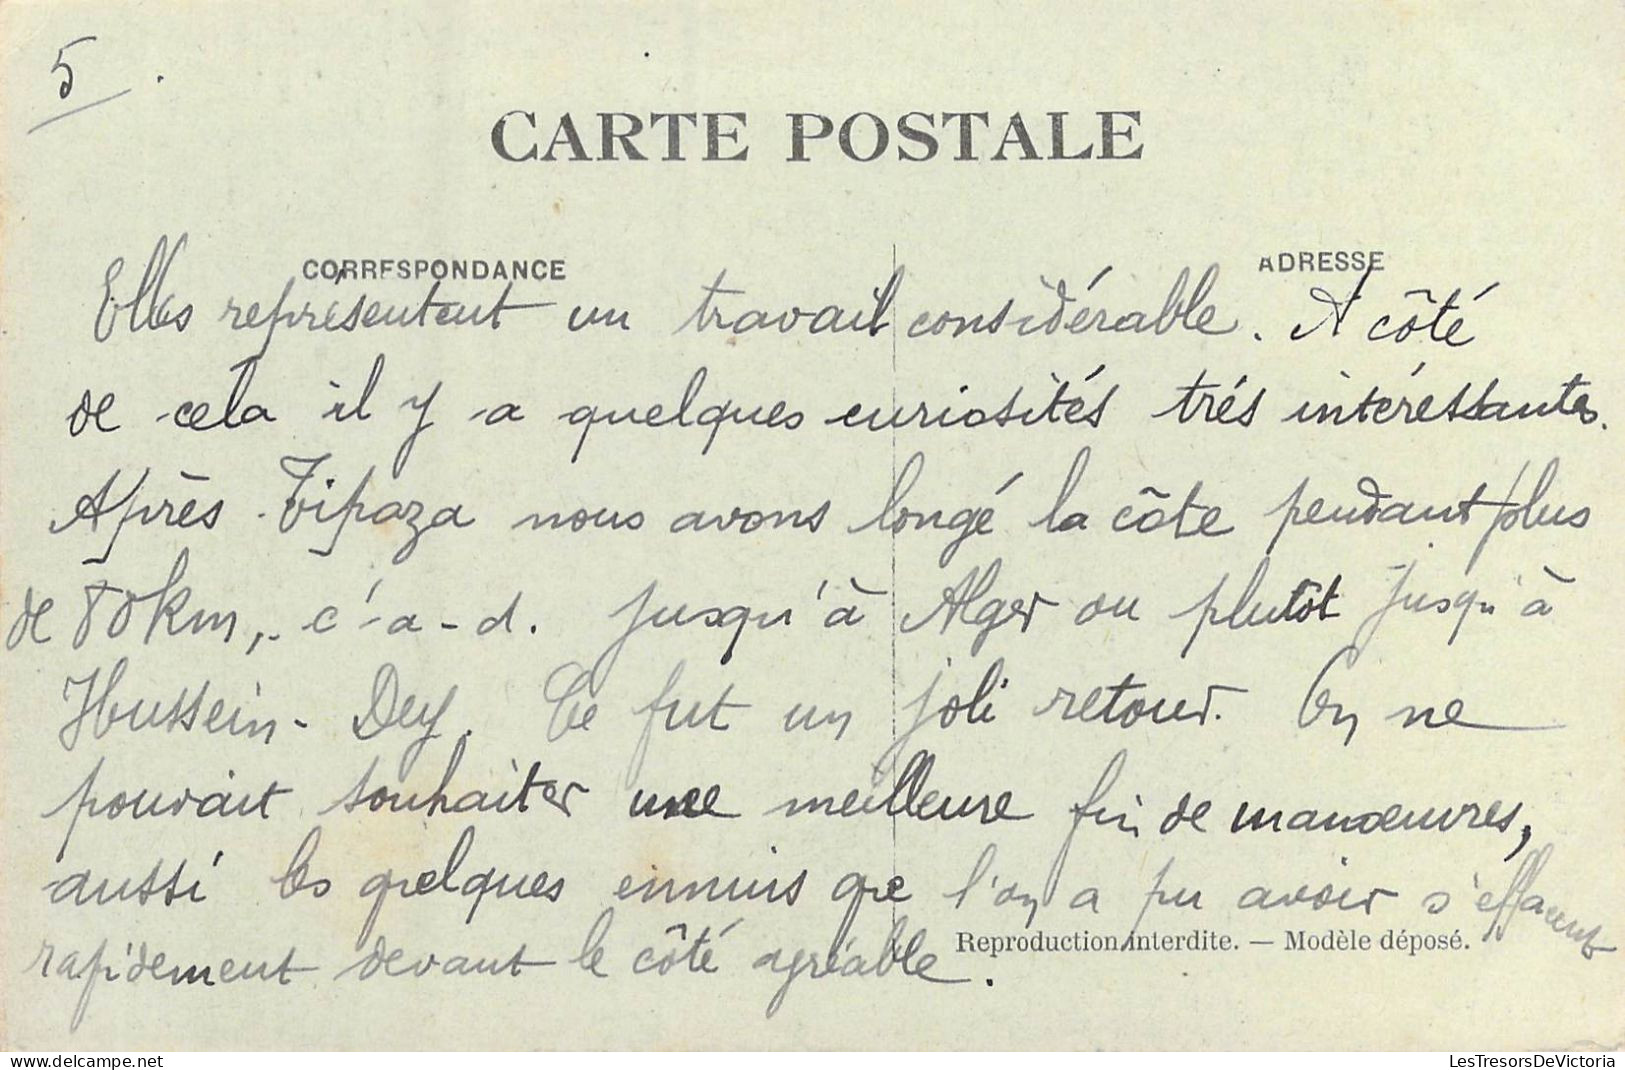 5
CARTE POSTALE
CORRESPONDANCE
ADRESSE
Elles représentent un travail considérable. A côté
de cela il y a quelques curiosités trés intéressantes.
Après Tipaza nous avons longé la côte pendant plus
de 80km, c'-a-d. jusqu'à Alger ou plutôt jusqu'à
Hussein-Dey. Ce fut un joli retour. On ne
pouvait souhaiter une meilleure fin de manœuvres,
aussi les quelques ennuis que l'on a pu avoir s'effacent
rapidement devant le côté agréable.
Reproduction interdite. — Modèle déposé.
www.delcampe.net
LesTresorsDeVictoria